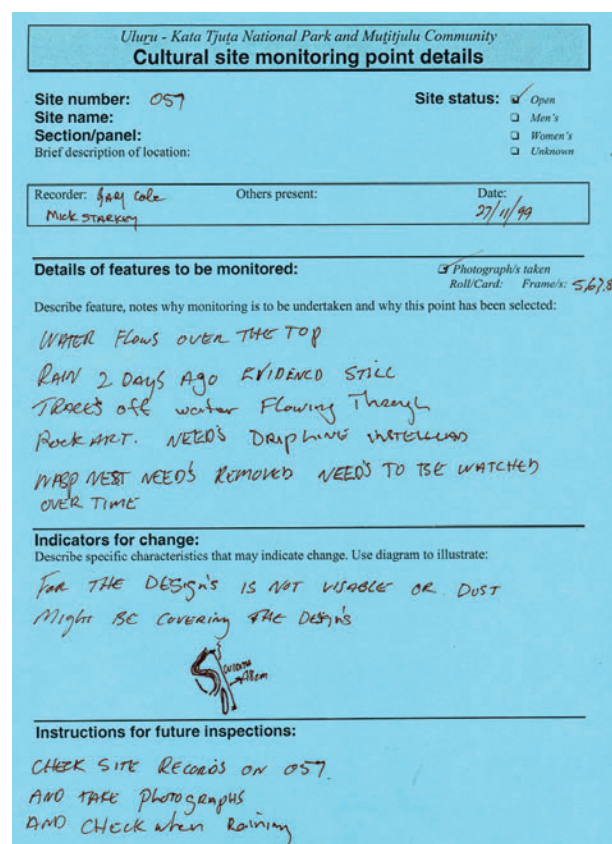 Uluṟu - Kata Tjuṯa National Park and Muṯitjulu Community
Cultural site monitoring point details
Site number: 057
Site status: Open
Site name:
Men's
Section/panel:
Women's
Brief description of location:
Unknown
Recorder: Gary Cole Others present: Date:
Mick Starkey 27/11/99
Details of features to be monitored: Photograph/s taken
Roll/Card: Frame/s: 5,6,7,8
Describe feature, notes why monitoring is to be undertaken and why this point has been selected:
WATER Flows OVER THE TOP
RAIN 2 DAYS AGO EVIDENCED STILL
TRACES off water Flowing Through
Rock ART. NEED'S DRIPLINE INSTELLAD
WASP NEST NEED'S REMOVED NEED'S TO BE WATCHED
OVER TIME
Indicators for change:
Describe specific characteristics that may indicate change. Use diagram to illustrate:
FOR THE DESIGN'S IS NOT VISABLE OR DUST
Might BE COVERING THE DESIGN'S
48cm
Instructions for future inspections:
CHECK SITE RECORDS ON 057.
AND TAKE PhotogRAPHS
AND CHECK when Raining